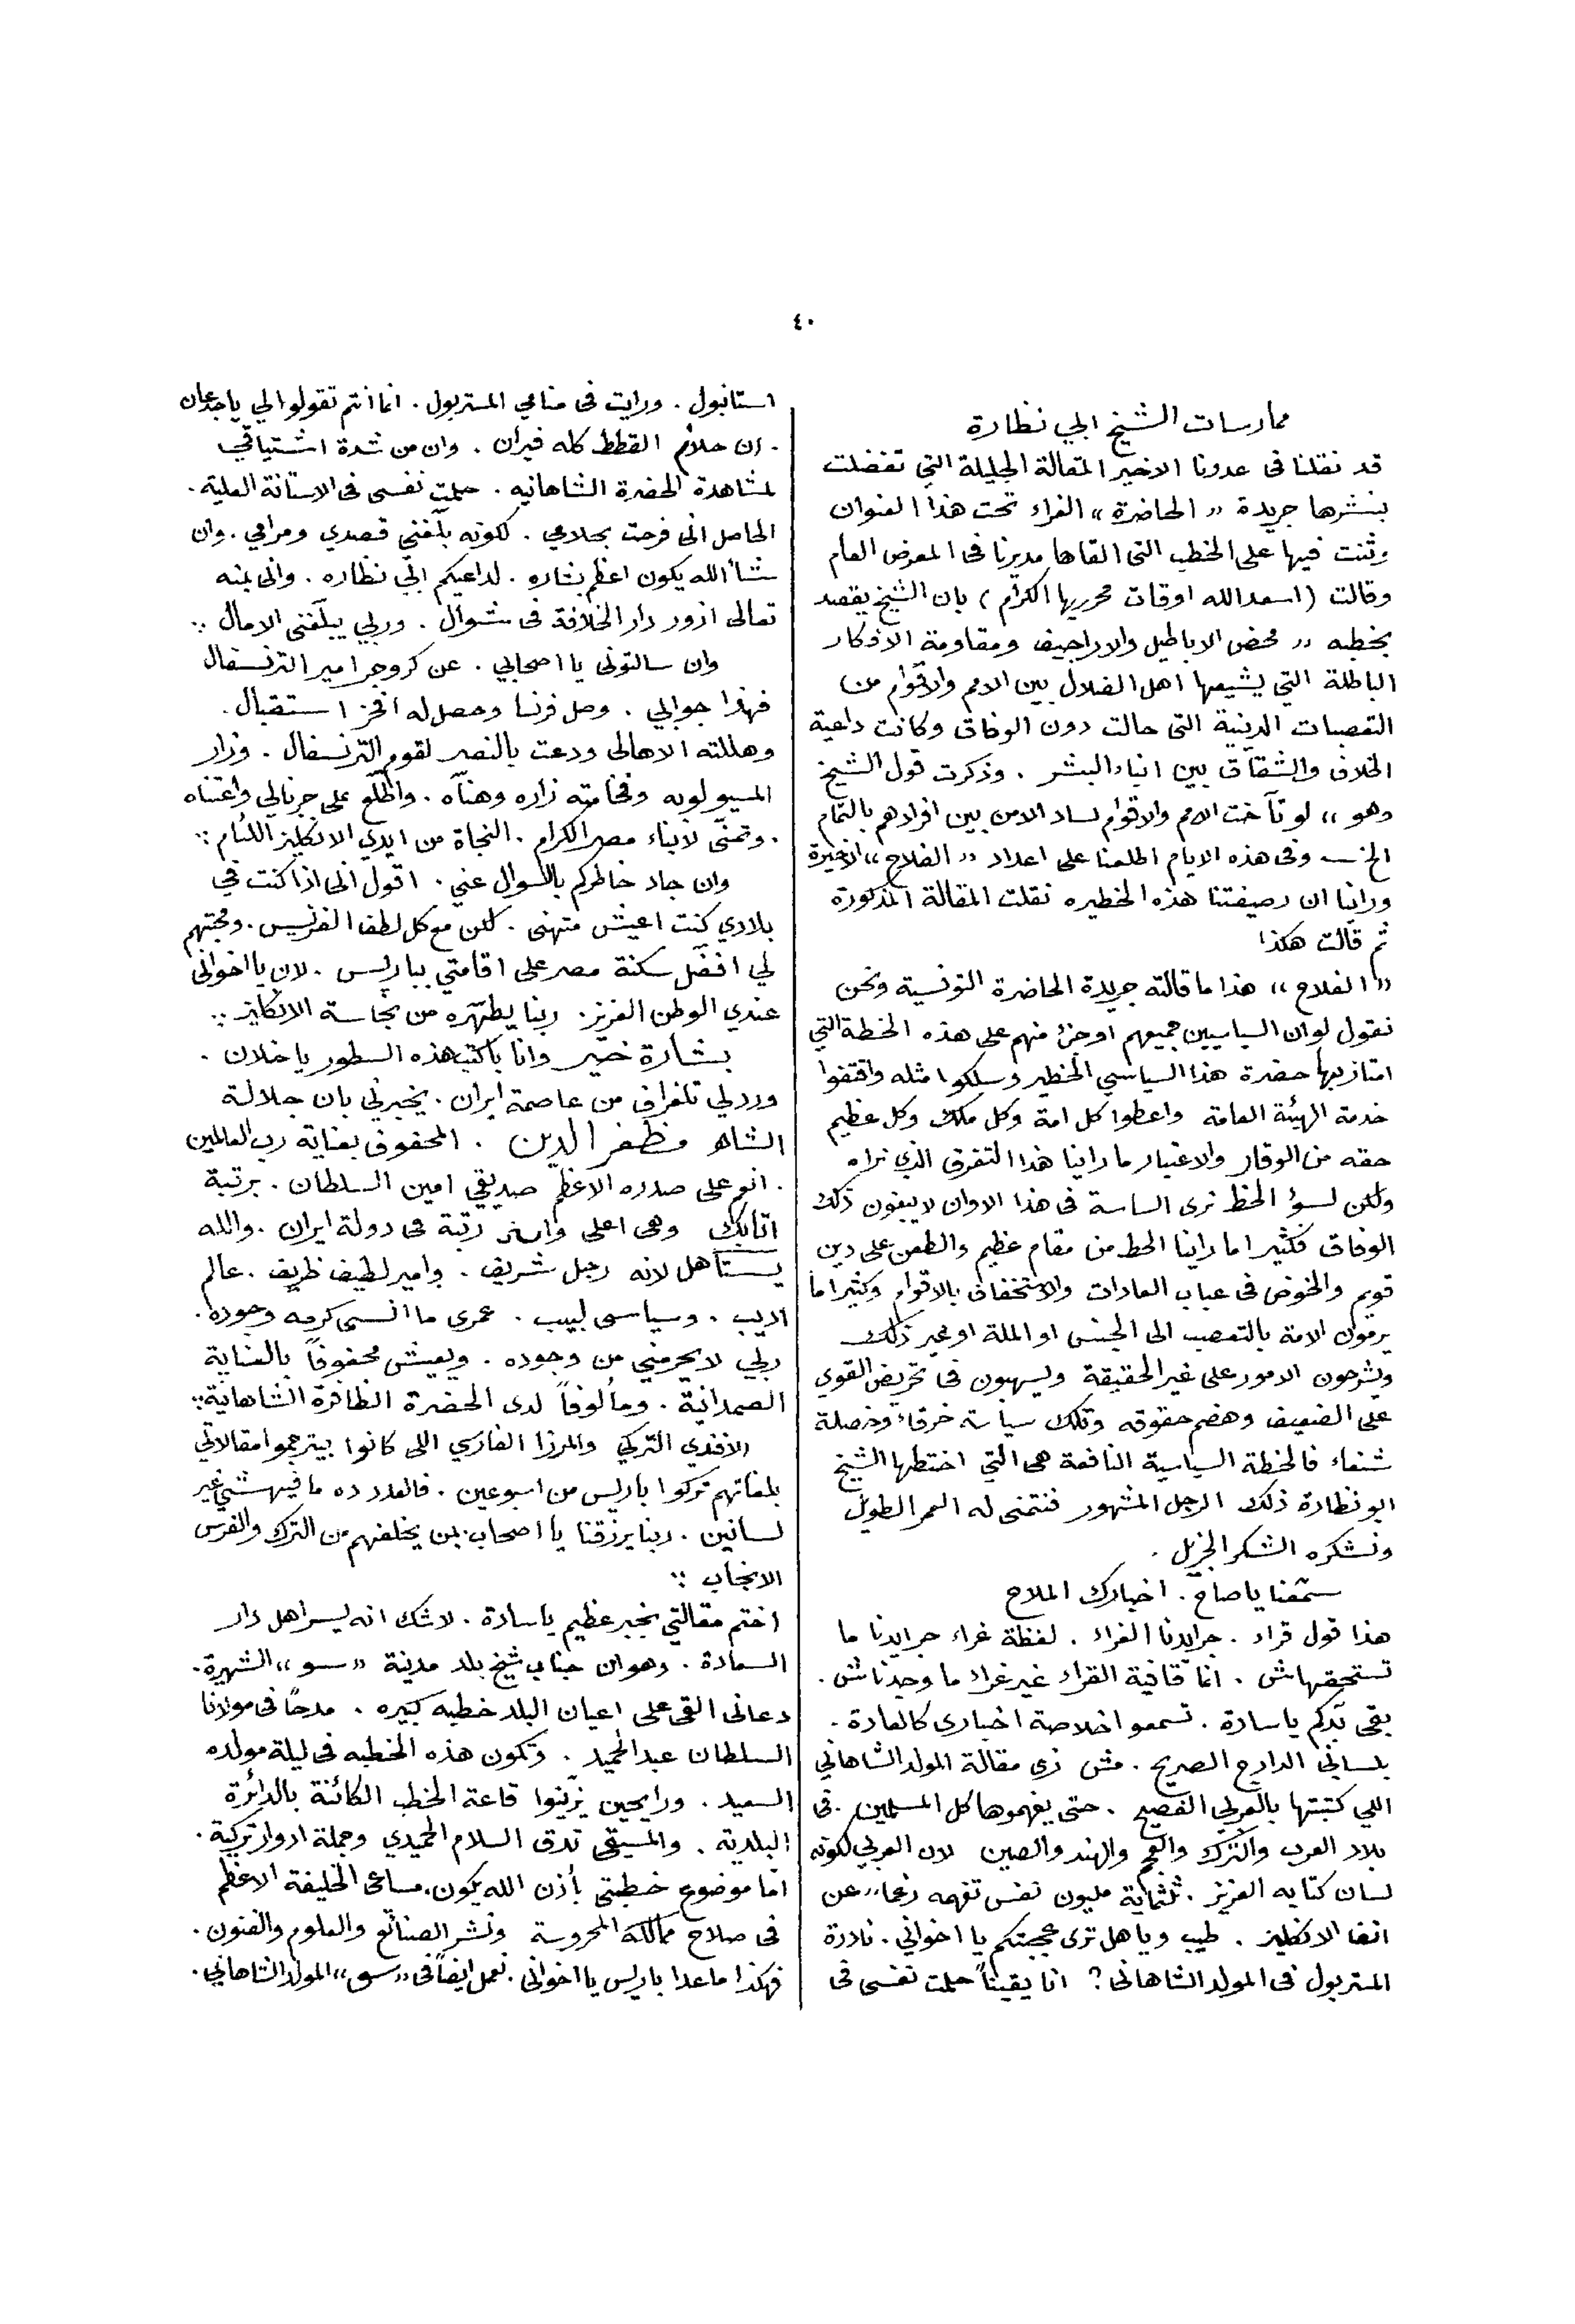 ٤٠
ممارسات الشيخ ابي نظارة
قد نقلنا فى عددنا الاخير المقالة الجليلة التي تفضلت
بنشرها جريدة «الحاضرة» الغراء تحت هذا العنوان
وثنت فيها على الخطب التى القاها مديرنا فى المعرض العام
وقالت (اسعد الله اوقات محرريها الكرام) بان الشيخ يقصد
بخطبه «محض الاباطيل والاراجيف ومقاومة الافكار
الباطلة التي يشيعها اهل الضلال بين الامم والاقوام من
التعصبات الدينية التى حالت دون الوفاق وكانت داعية
الخلاف والشقاق بين ابناء البشر . وذكرت قول الشيخ
وهو» لو تآخت الامم والاقوام لساد الامن بين افرادهم بالتمام
الخ ـ وفى هذه الايام اطلعنا على اعداد «الفلاح» الاخيرة
وراينا ان رصيفتنا هذه الخطيره نقلت المقالة المذكورة
ثم قالت هكذا
«الفلاح» هذا ما قالته جريدة الحاضرة التونسية ونحن
نقول لو ان السياسيين جميعهم او جزء منهم على هذه الخطة التي
امتاز بها حضرة هذا السياسي الخطير وسلكوا مثله واقتفوا
خدمة الهيئة العامة واعطوا كل امة وكل ملك وكل عظيم
حقه من الوقار والاعتبار ما راينا هذا التفرق الذي نراه
ولكن لسؤ الحظ نرى الساسة فى هذا الاوان لا يبغون ذلك
الوفاق فكثيرا ما راينا الحط من مقام عظيم والطعن على دين
قويم والخوض فى عباب العادات والاستخفاف بالاقوام وكثيرا ما
يرمون الامة بالتعصب الى الجنس او الملة او غير ذلك
ويشرحون الامور على غير الحقيقة ويسهبون فى تحريض القوي
على الضعيف وهضم حقوقه وتلك سياسة خرقاء وخصلة
شنعاء فالخطة السياسية النافعة هى التي اختطها الشيخ
ابو نظارة ذلك الرجل المشهور فنتمنى له العمر الطويل
ونشكره الشكر الجزيل .
سمّعنا يا صاح . اخبارك الملاح
هذا قول قراء . جرايدنا الغراء . لفظة غراء جرايدنا ما
تستحقهاش . انما قافية القراء غير غراء ما وجدناش .
بقى بدكم يا سادة . تسمعوا خلاصة اخبارى كالعادة .
بلساني الدارج الصريح . مش زي مقالة المولد الشاهاني
اللي كتبتها بالعربي الفصيح . حتى يفهموها كل المسلمين . فى
بلاد العرب والترك والعجم والهند والصين لان العربي لكونه
لسان كتابه العزيز . ثلثماية مليون نفس تفهمه رغما» عن
انف الانكليز . طيب ويا هل ترى عجبتكم يا اخواني . نادرة
المستربول فى المولد الشاهانى ? انا يقيناً حلمت نفسى فى
استانبول . ورايت فى منامي المستربول . انما انتم تقولوا لي يا جدعان
. ان حلام القطط كله فيران . وان من شدة اشتياقي
لمشاهدة الحضرة الشاهانيه . حلمت نفسى فى الاستانة العلية .
الحاصل انى فرحت بحلامي . لكونه بلّغنى قصدي ومرامي . وان
شأ الله يكون اعظم بشاره . لداعيكم ابي نظاره . وانى بمنه
تعالى ازور دار الخلافة فى شوال . وربي يبلّغنى الامال ..
وان سالتونى يا اصحابي . عن كروجر امير الترنسفال
فهذا جوابي . وصل فرنسا وحصل له افخر استقبال .
وهللته الاهالى ودعت بالنصر لقوم الترنسفال . وزار
المسيو لوبه وفخامته زاره وهنّاه . واطّلع على جرنالي واغتناه
. وتمنّى لابناء مصر الكرام . النجاة من ايدي الانكليز اللئام ..
وان جاد خاطركم بالسوال عني . اقول انى اذا كنت في
بلادي كنت اعيش متهنى . لكن مع كل لطف الفرنسيس . ومحبتهم
لي افضّل سكنة مصر على اقامتي ببارليس . لان يا اخوانى
عندي الوطن العزيز . ربنا يطهّره من نجاسة الانكليز ..
بشارة خير وانا باكتب هذه السطور يا خلان .
وردلي تلغراف من عاصمة ايران . يخبرني بان جلالة
الشاه مظفر الدين . المحفوف بعناية رب العالمين
. انعم على صدره الاعظم صديقي امين السلطان . برتبة
اتابك وهى اعلى رتبة فى دولة ايران . والله
يستاهل لانه رجل شريف . وامير لطيف ظريف . عالم
اديب . وسياسى لبيب . عمرى ما انسى كرمه وجوده .
ربي لا يحرمني من وجوده . ويعيش محفوفاً بالعناية
الصمدانية . ومألوفاً لدى الحضرة الظافرة الشاهانية ..
الافندي التركي والمرزا الفارسي اللى كانوا بيترجموا مقالاتي
بلغاتهم تركوا باريس من اسبوعين . فالعدد ده ما فيهش غير
لسانين . ربنا يرزقنا يا اصحاب بمن يخلفهم من الترك والفرس
الانجاب ..
اختم مقالتي بخبر عظيم يا سادة . لا شك انه يسر اهل دار
السعادة . وهو ان جناب شيخ بلد مدينة «سو» الشهيرة .
دعانى القى على اعيان البلد خطبه كبيره . مدحًا فى مولانا
السلطان عبد الحميد . وتكون هذه الخطبه فى ليلة مولده
السعيد . ورايحين يزّينوا قاعة الخطب الكائنة بالدائرة
البلديه . والمسيقى تدق السلام الحميدي وجملة ادوار تركية .
اما موضوع خطبتى بأذن الله يكون . مساعى الخليفة الاعظم
فى صلاح ممالكه المحروسة ونشر الصنائع والعلوم والفنون .
فهكذا ما عدا باريس يا اخوانى . نعمل ايضاً فى «سو» المولد الشاهاني .